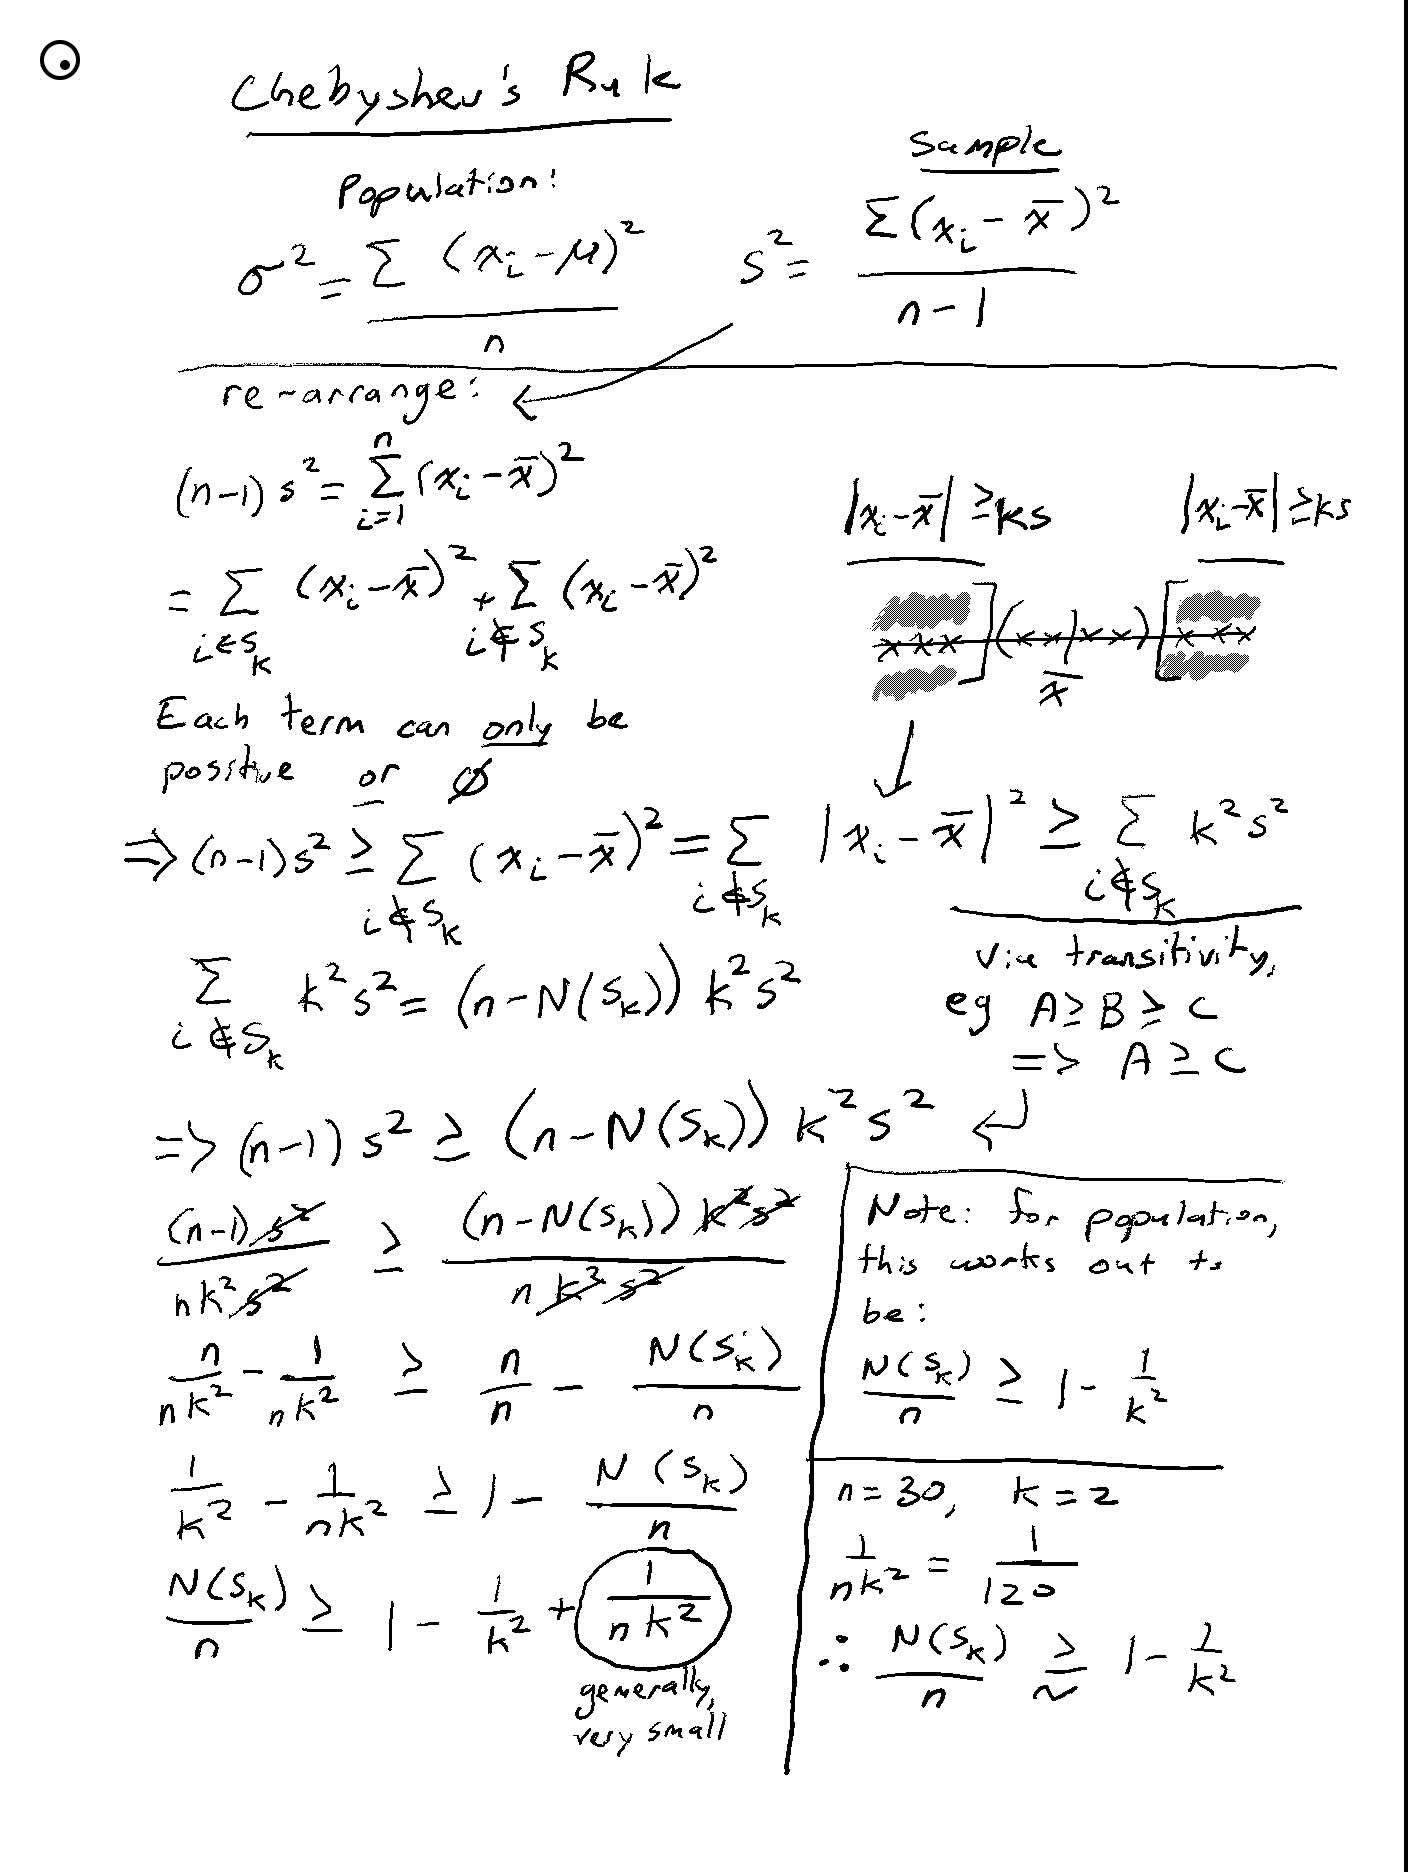 Chebyshev's Rule
Population:
σ² = Σ (xᵢ - μ)² / n
Sample
s² = Σ(xᵢ - x̄)² / n - 1
re-arrange:
(n-1) s² = Σᵢ₌₁ⁿ (xᵢ - x̄)²
= Σ_{i∈S_k} (xᵢ - x̄)² + Σ_{i∉S_k} (xᵢ - x̄)²
|xᵢ - x̄| ≥ ks
|xᵢ - x̄| ≥ ks
x x x ] ( x x | x x ) [ x x x
x̄
Each term can only be
positive or Ø
=> (n-1)s² ≥ Σ_{i∉S_k} (xᵢ - x̄)² = Σ_{i∉S_k} |xᵢ - x̄|² ≥ Σ_{i∉S_k} k²s²
Σ_{i∉S_k} k²s² = (n - N(S_k)) k²s²
via transitivity,
eg A ≥ B ≥ C
=> A ≥ C
=> (n-1) s² ≥ (n - N(S_k)) k²s²
(n-1) s² / nk²s² ≥ (n - N(S_k)) k²s² / n k² s²
n/nk² - 1/nk² ≥ n/n - N(S_k)/n
1/k² - 1/nk² ≥ 1 - N(S_k)/n
N(S_k)/n ≥ 1 - 1/k² + 1/nk²
generally,
very small
Note: for population,
this works out to
be:
N(S_k)/n ≥ 1 - 1/k²
n = 30, k = 2
1/nk² = 1/120
∴ N(S_k)/n ≳ 1 - 1/k²